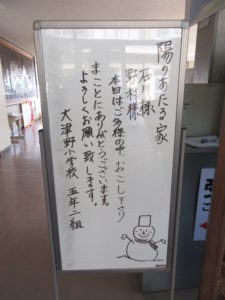 陽のあたる家
石川様
野村様
本日はご多様の中、おこし下さり
まことにありがとうございます。
よろしくお願い致します。
大津野小学校 五年二組